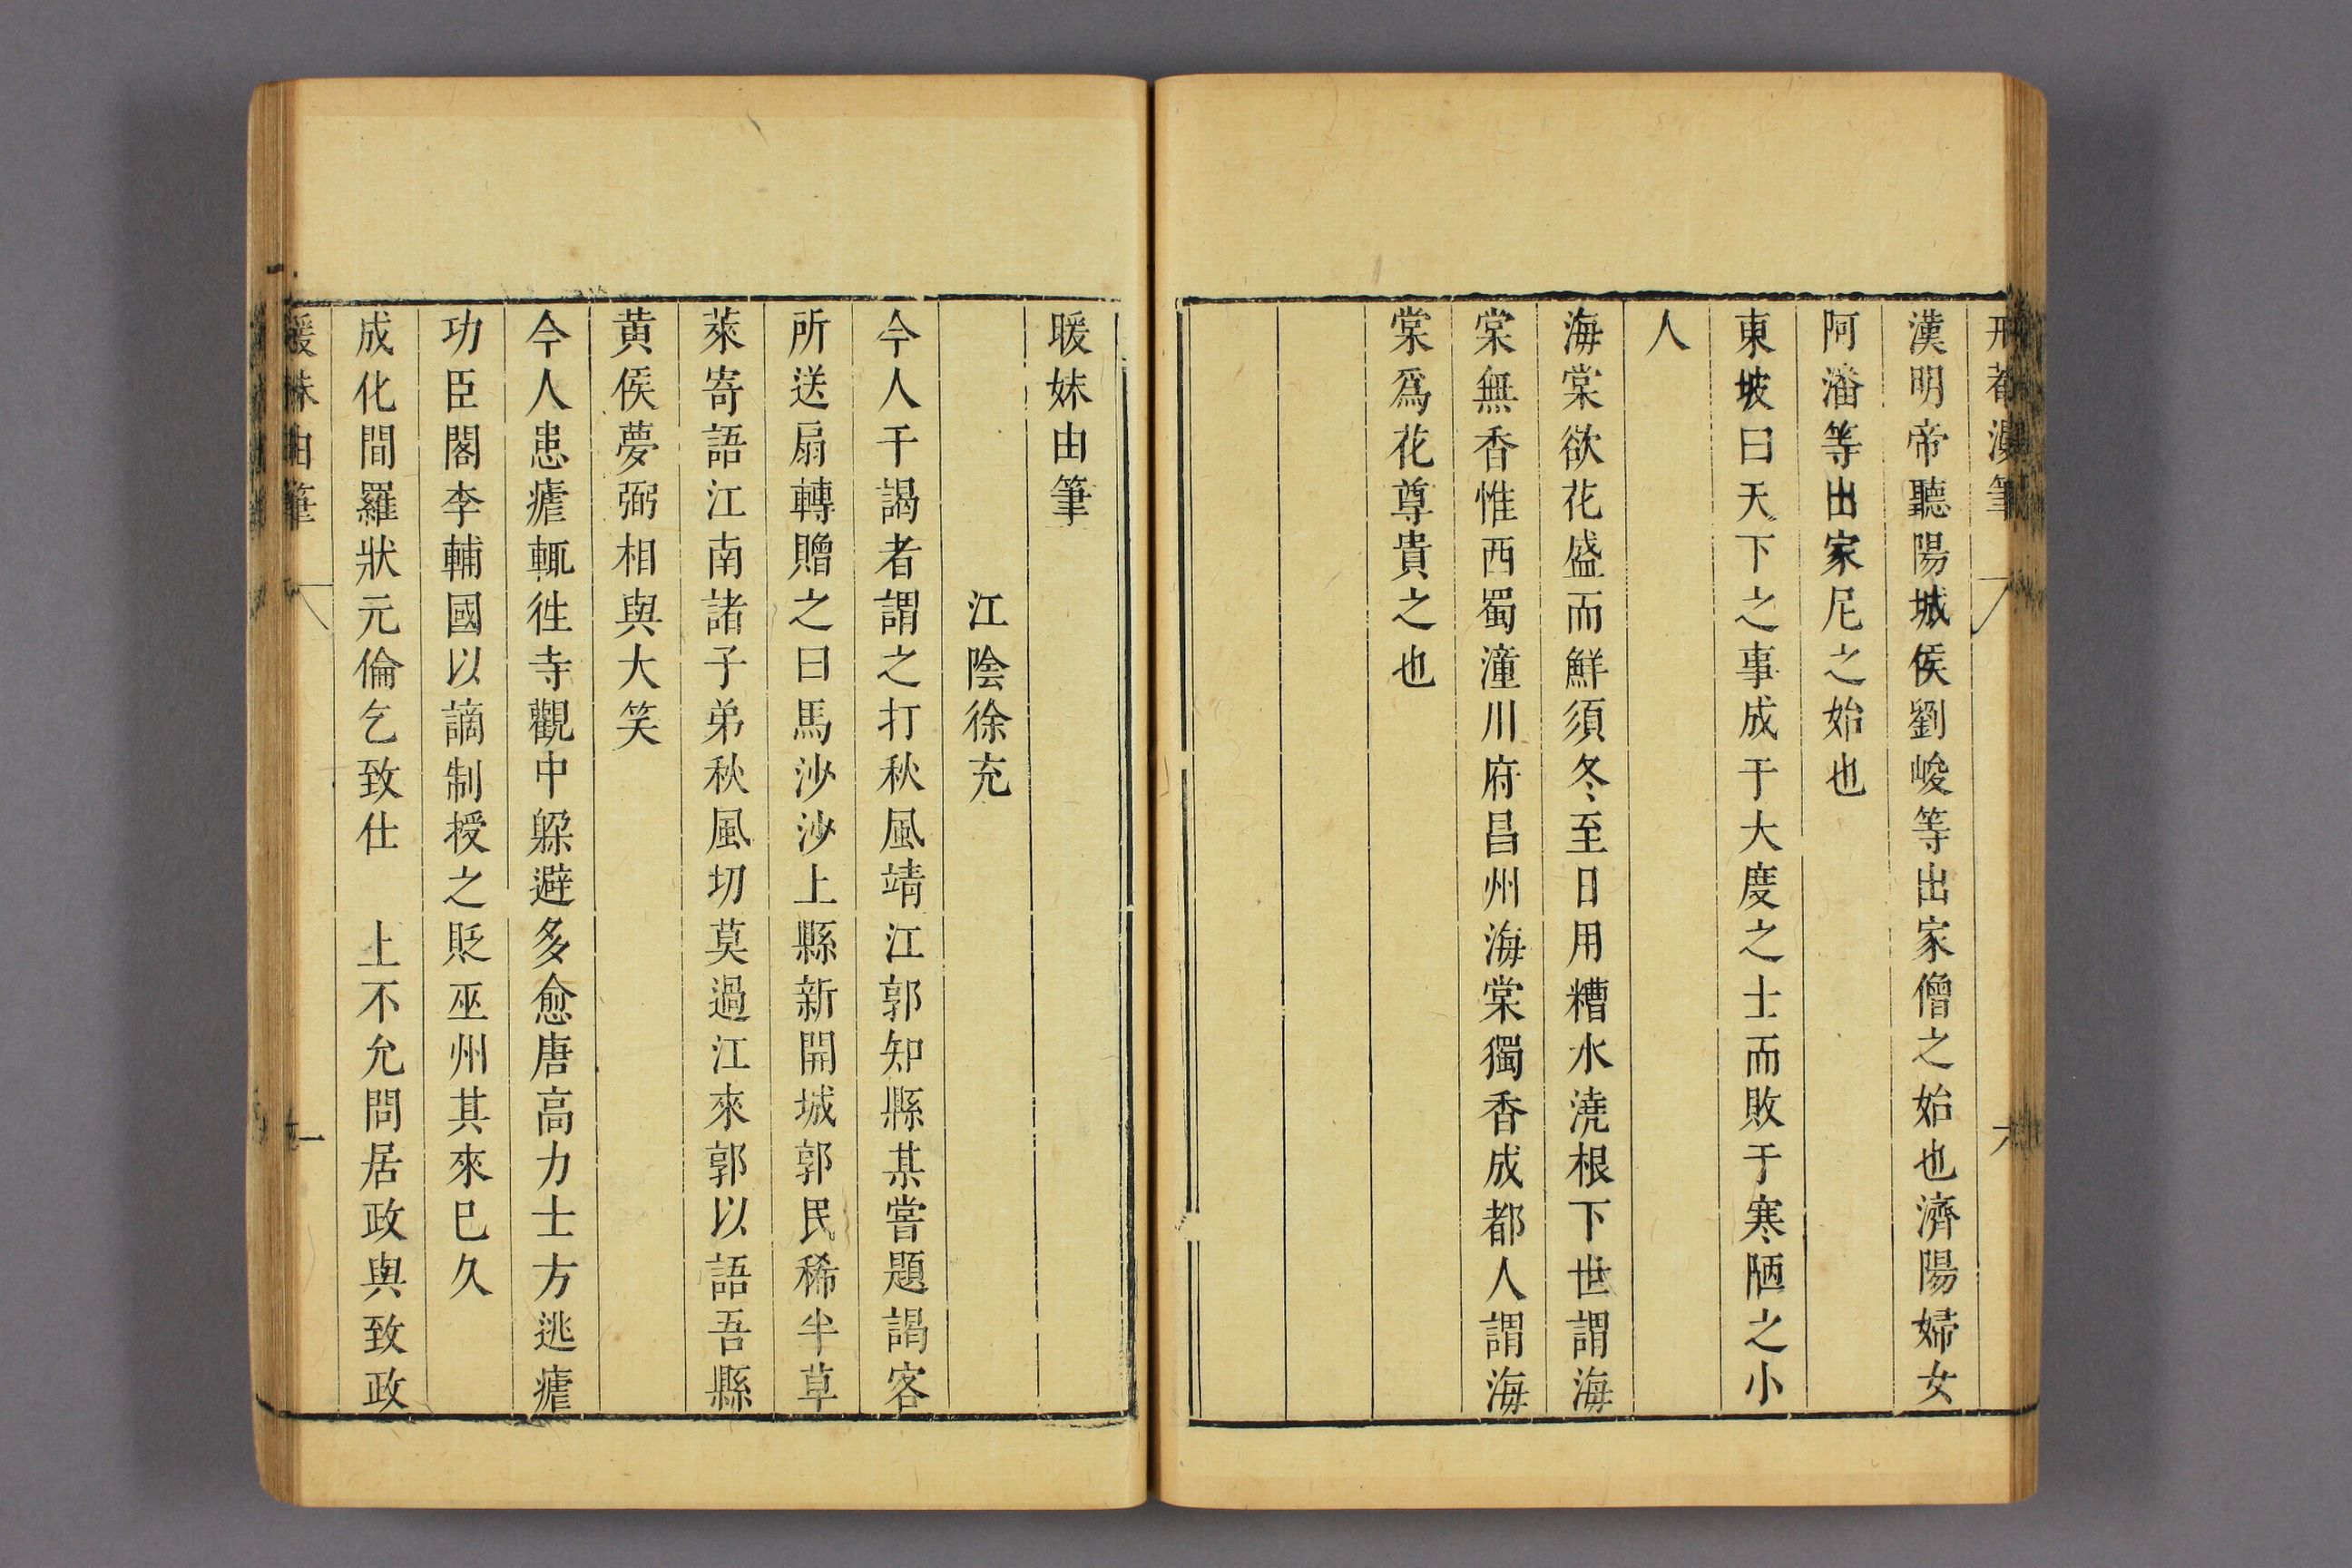 漢明帝聽陽城侯劉峻等出家僧之始也濟陽婦女
阿潘等出家尼之始也
東坡曰天下之事成于大度之士而敗于寒陋之小
人
海棠欲花盛而鮮須冬至日用糟水澆根下世謂海
棠無香惟西蜀潼川府昌州海棠獨香成都人謂海
棠爲花尊貴之也
暖姝由筆
江陰徐充
今人干謁者謂之打秋風靖江郭知縣某嘗題謁客
所送扇轉贈之曰馬沙沙上縣新開城郭民稀半草
萊寄語江南諸子弟秋風切莫過江來郭以語吾縣
黄侯夢弼相與大笑
今人患瘧輒徃寺觀中躱避多愈唐高力士方逃瘧
功臣閣李輔國以謫制授之貶巫州其來已久
成化間羅狀元倫乞致仕　上不允問居政與致政
暖姝由筆
一